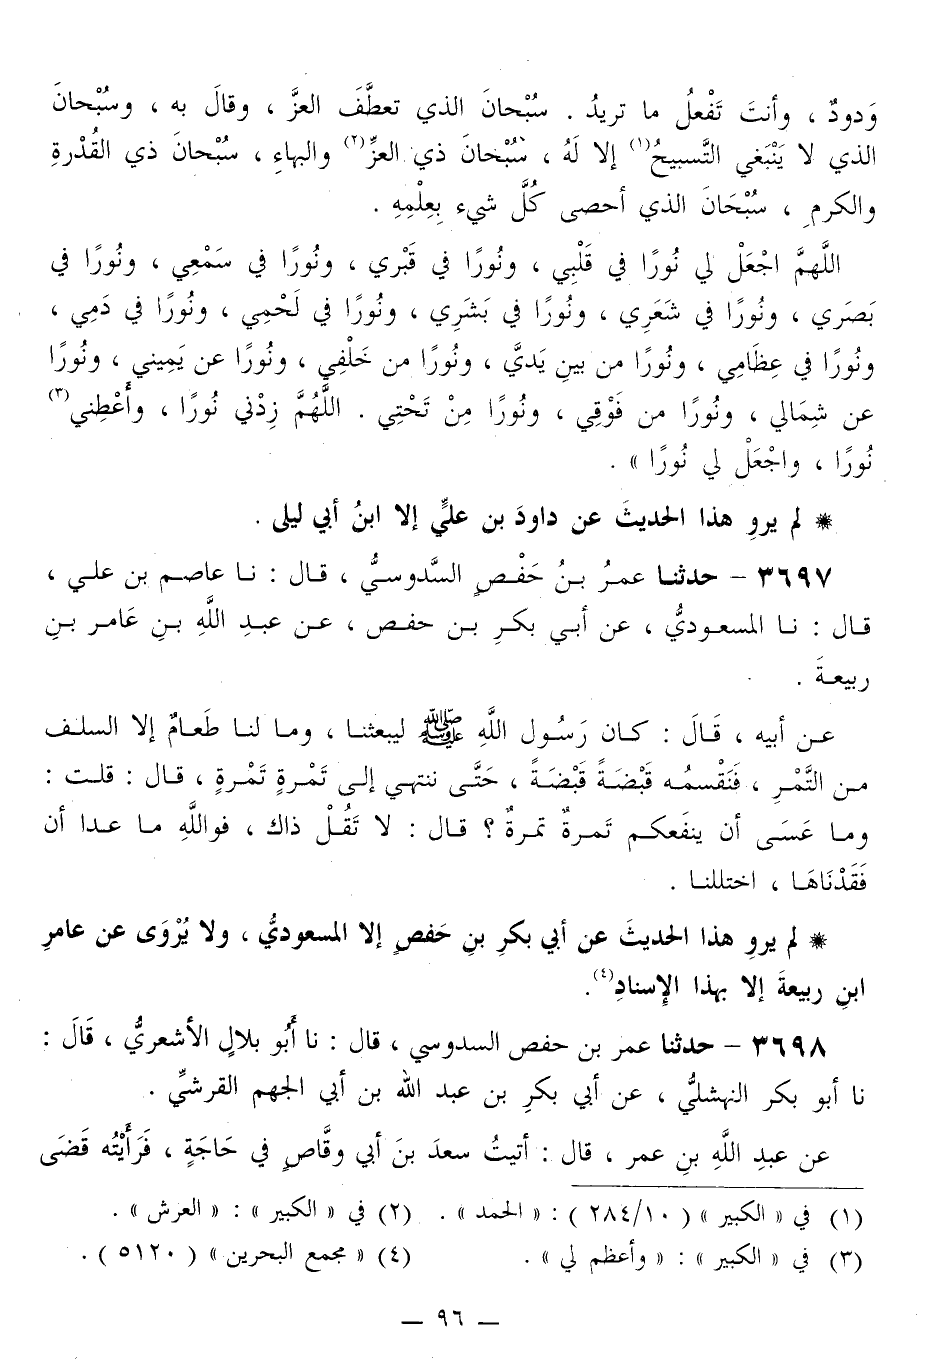 وَدودٌ ، وأنتَ تَفْعلُ ما تريدُ . سُبْحانَ الذي تعطَّفَ العزَّ ، وقالَ به ، وسُبْحانَ
الذي لا يَنْبَغي التَّسبيحُ(١) إلا لَهُ ، سُبْحَانَ ذي العزِّ(٢) والبهاءِ ، سُبْحانَ ذي القُدْرةِ
والكرمِ ، سُبْحَانَ الذي أحصى كُلَّ شيء بِعِلْمِهِ .
اللَّهمَّ اجْعَلْ لي نُورًا في قَلْبِي ، ونُورًا في قَبْرِي ، ونُورًا في سَمْعِي ، ونُورًا في
بَصَرَي ، ونُورًا في شَعَرِي ، ونُورًا في بَشَرِي ، ونُورًا في لَحْمِي ، ونُورًا في دَمِي ،
ونُورًا في عِظَامِي ، ونُورًا من بينِ يَديَّ ، ونُورًا من خَلْفِي ، ونُورًا عن يَمِيني ، ونُورًا
عن شِمَالي ، ونُورًا من فَوْقِي ، ونُورًا مِنْ تَحْتِي . اللَّهُمَّ زِدْنِي نُورًا ، وأَعْطِني(٣)
نُورًا ، واجْعَلْ لي نُورًا » .
* لم يروِ هذا الحديثَ عن داودَ بن عليٍّ إلا ابنُ أبي ليلى .
٣٦٩٧ – حدثنا عمرُ بنُ حَفْصٍ السَّدوسيُّ ، قال : نا عاصم بن علي ،
قال : نا المسعوديُّ ، عن أبي بكرِ بن حفص ، عن عبدِ اللَّهِ بنِ عَامر بنِ
ربيعةَ .
عن أبيه ، قَالَ : كان رَسُول اللَّهِ ﷺ ليبعثنا ، وما لنا طَعامٌ إلا السلف
من التَّمْرِ ، فَنَقْسمُه قَبْضَةً قَبْضَةً ، حَتَّى ننتهي إلى تَمْرةٍ تَمْرةٍ ، قال : قلت :
وما عَسَى أن ينفَعكم تَمرةٌ تمرةٌ ؟ قال : لا تَقُلْ ذاك ، فواللَّهِ ما عدا أن
فَقَدْنَاهَا ، اختللنا .
* لم يروِ هذا الحديثَ عن أبي بكرِ بنِ حَفصٍ إلا المسعوديُّ ، ولا يُرْوَى عن عامرِ
ابنِ ربيعةَ إلا بهذا الإِسنادِ(٤).
٣٦٩٨ – حدثنا عمر بن حفص السدوسي ، قال : نا أَبُو بلالٍ الأشعريُّ ، قَالَ :
نا أبو بكر النهشليُّ ، عن أبي بكرِ بن عبد الله بن أبي الجهم القرشيِّ .
عن عبدِ اللَّهِ بنِ عمر ، قال : أتيتُ سعدَ بنَ أبي وقَّاصٍ في حَاجَةٍ ، فَرَأَيْتُه قَضَى
(١) في « الكبير » ( ٢٨٤/١٠ ) : « الحمد » . (٢) في « الكبير » : « العرش » .
(٣) في « الكبير » : « وأعظم لي » . (٤) « مجمع البحرين » ( ٥١٢٠ ) .
— ٩٦ —